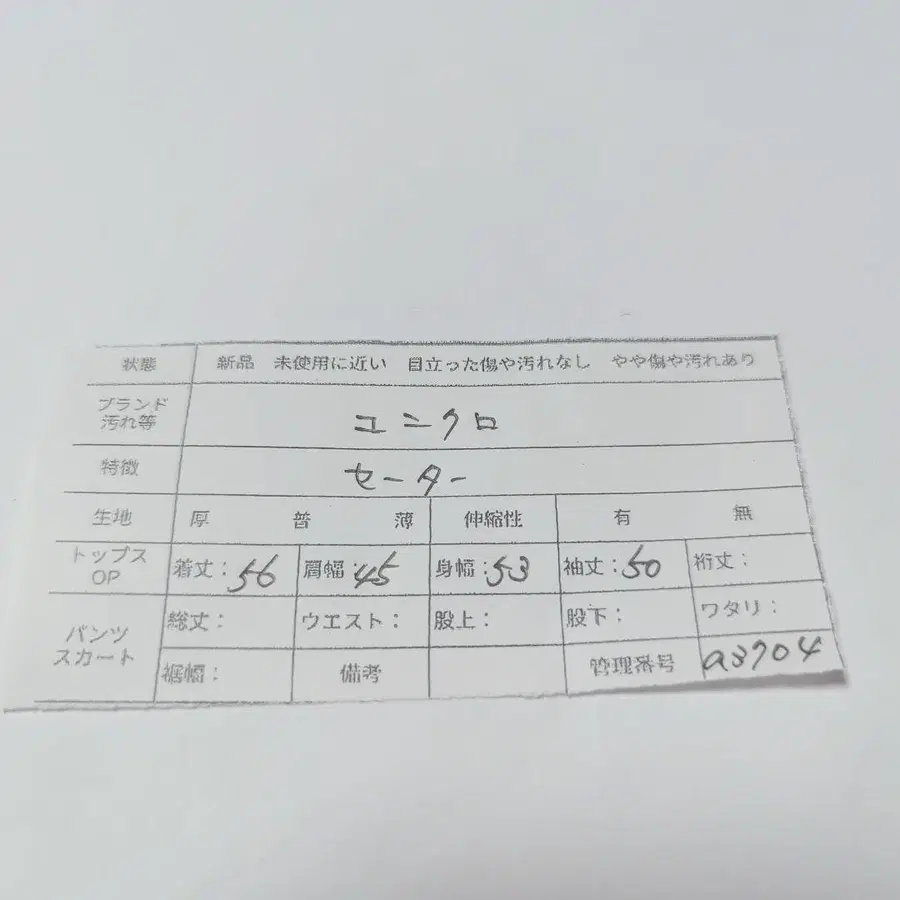 状態 新品 未使用に近い 目立った傷や汚れなし やや傷や汚れあり
ブランド
汚れ等
ユニクロ
特徴 セーター
生地 厚 普 薄 伸縮性 有 無
トップス
OP
着丈：56 肩幅：45 身幅：53 袖丈：50 裄丈：
パンツ
スカート
総丈： ウエスト： 股上： 股下： ワタリ：
裾幅： 備考 管理番号 a3704